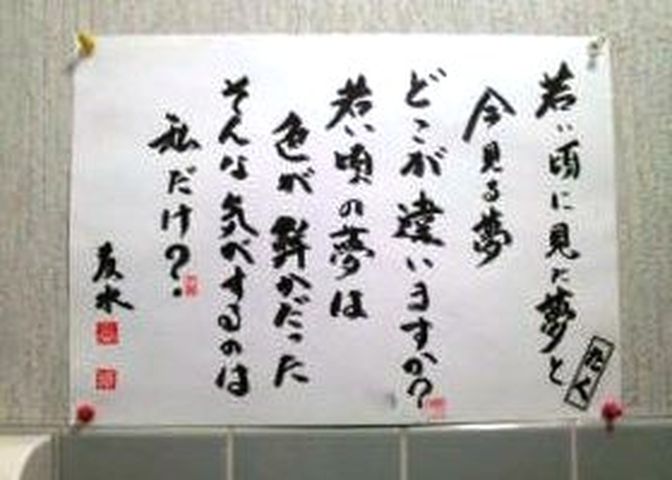 若い頃に見た夢と
今見る夢
どこが違いますか?
若い頃の夢は
色が鮮かだった
そんな気がするのは
私だけ?